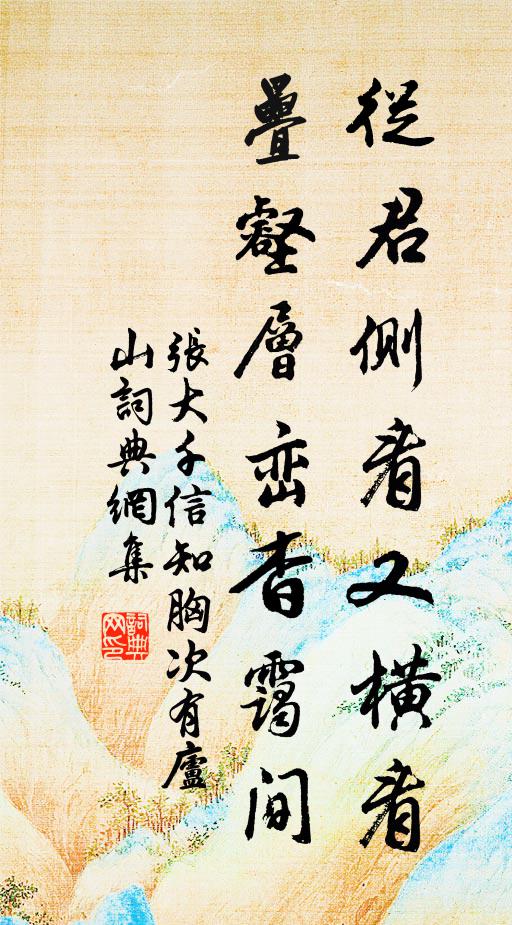 從君側看又橫看
疊壑層巒杳靄間
張大千信知胸次有廬
山詞典網集
詞典網印